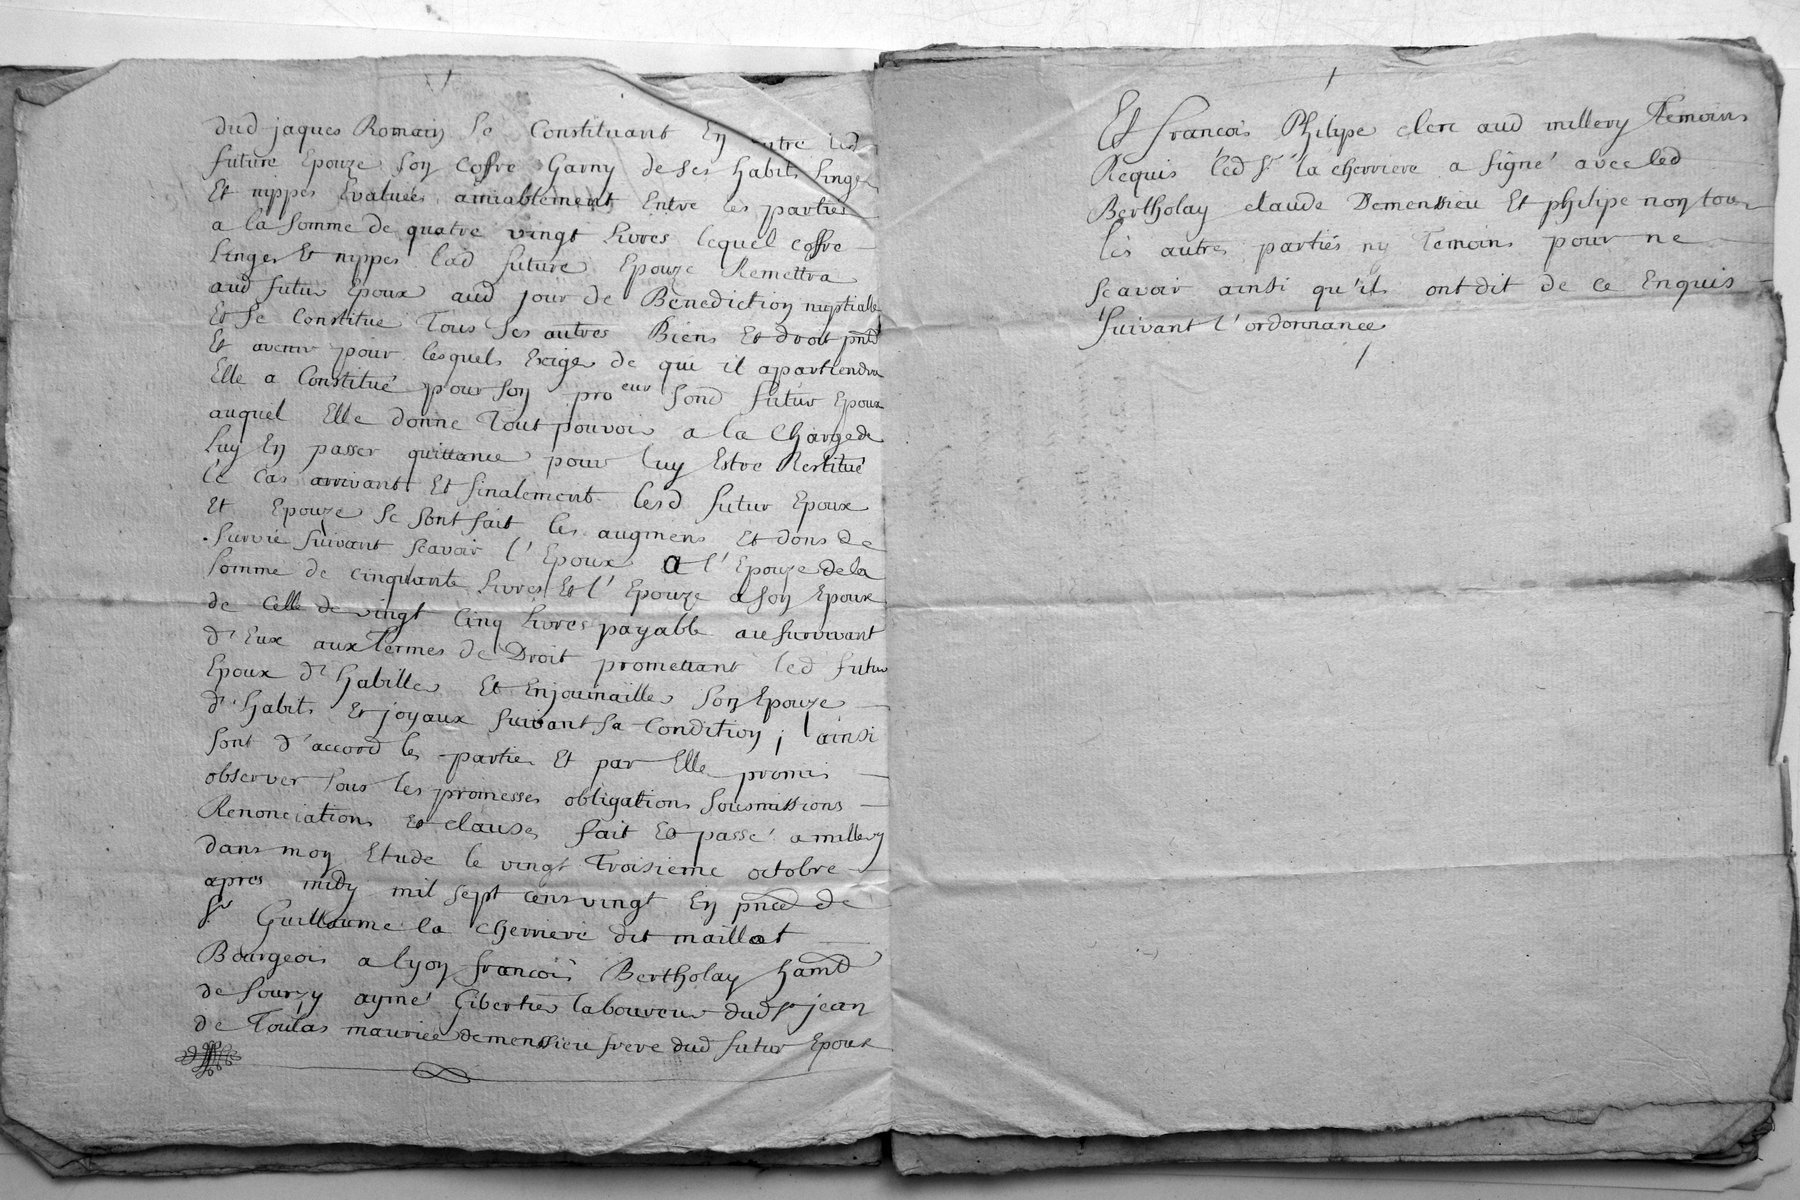 dud jaques Romain Se Constituant En outre lad
future Epouze Son Coffre Garny de Ses habits Linges
Et nippes Evaluées amiablement Entre les parties
a la Somme de quatre vingt Livres lequel coffre
Linges Et nippes lad future Epouze Remettra
aud futur Epoux aud jour de Benediction nuptialle
Et Se Constitue Tous Ses autres Biens Et droit pnts
Et avenir pour lesquels Exiger de qui il apartiendra
Elle a Constitué pour Son proeur Sond futur Epoux
auquel Elle donne Tout pouvoir a la Charge de
Luy En passer quittance pour luy Estre Restitué
le Cas arrivant Et finalement lesd futur Epoux
Et Epouze Se Sont fait les augmens Et dons de
Survie Suivant Scavoir l'Epoux a l'Epouze de la
Somme de cinquante Livres Et l'Epouze a Son Epoux
de Celle de vingt Cinq Livres payable au Survivant
d'Eux aux Termes de Droit promettant led futur
Epoux d'habiller Et Enjouailler Son Epouze
d'habits Et joyaux Suivant Sa Condition ; ainsi
Sont d'accord les partie Et par Elle promis
observer Sous les promesses obligations Soumissions
Renonciations Et clauses fait Et passé a millery
dans mon Etude le vingt Troisieme octobre
apres midy mil sept cens vingt En pnce de
Sr Guillaume la Cherriere dit maillot
Bourgeois a lyon françois Bertholay hamt
de Sourzy aymé Gibertier laboureur dud St jean
de Toulas maurice demenssieu frere dud futur Epoux
Et françois Philipe clerc aud millery Temoins
Requis led Sr la cherriere a Signé avec led
Bertholay claude Demenssieu Et philipe non tous
les autres parties ny Temoins pour ne
Scavoir ainsi qu'ils ont dit de ce Enquis
Suivant l'ordonnance